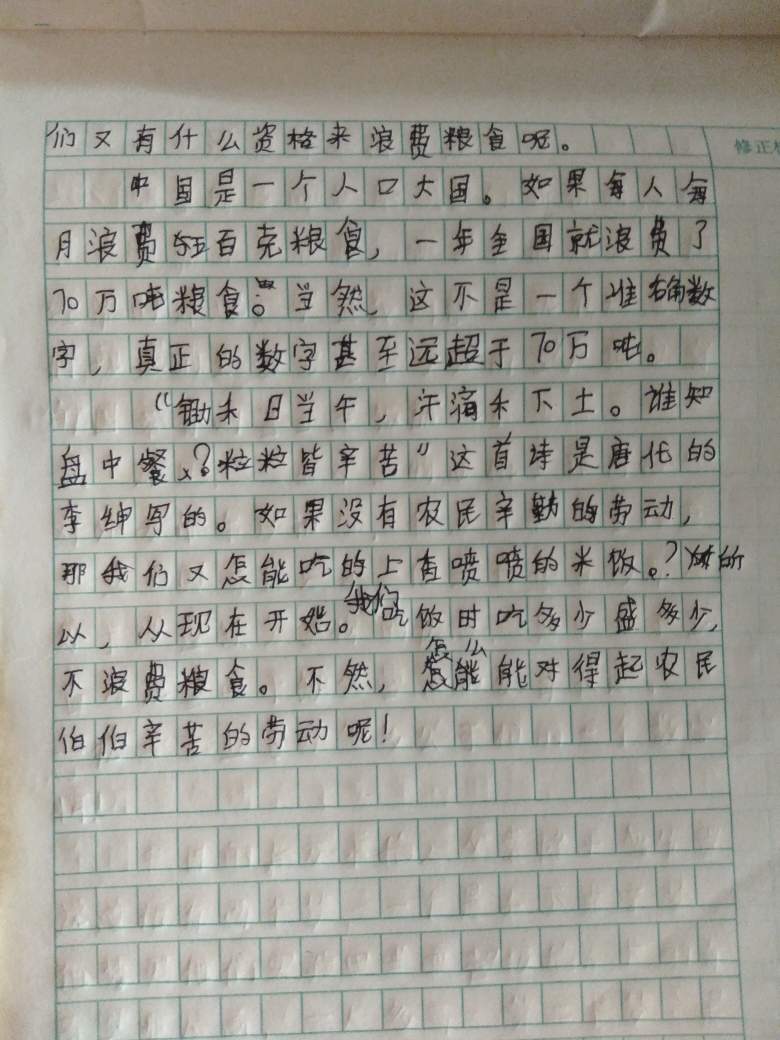 们又有什么资格来浪费粮食呢。
修正
中国是一个人口大国。如果每人每
月浪费五百克粮食，一年全国就浪费了
70万吨粮食。当然，这不是一个准确数
字，真正的数字甚至远超于70万吨。
“锄禾日当午，汗滴禾下土。谁知
盘中餐？粒粒皆辛苦”这首诗是唐代的
李绅写的。如果没有农民辛勤的劳动，
那我们又怎能吃的上香喷喷的米饭。？所
以，从现在开始。我们吃饭时吃多少盛多少，
不浪费粮食。不然，怎么能对得起农民
伯伯辛苦的劳动呢！